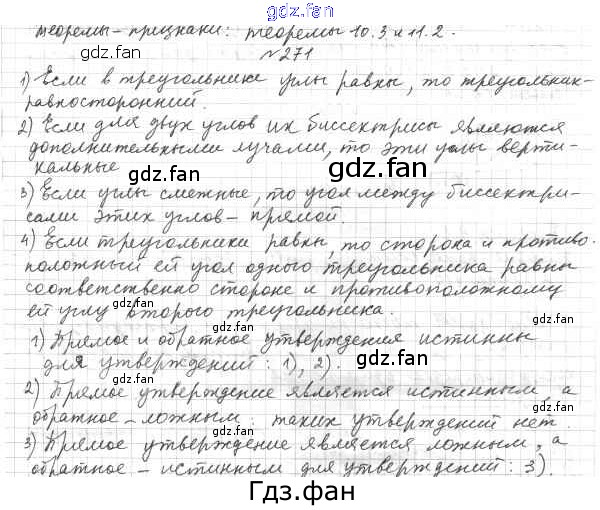 gdz.fan
теоремы-признаки: теоремы 10.3 и 11.2.
gdz.fan
№271
gdz.fan
1) Если в треугольнике углы равны, то треугольник-
равносторонний.
gdz.fan
2) Если для двух углов их биссектрисы являются
дополнительными лучами, то эти углы верти-
кальные
gdz.fan
3) Если углы смежные, то угол между биссектри-
сами этих углов - прямой.
gdz.fan
4) Если треугольники равны, то сторона и противо-
положный ей угол одного треугольника равны
соответственно стороне и противоположному
ей углу второго треугольника.
gdz.fan
1) Прямое и обратное утверждения истинны
для утверждений: 1), 2).
gdz.fan
2) Прямое утверждение является истинным, а
gdz.fan
обратное - ложным: таких утверждений нет.
3) Прямое утверждение является ложным, а
gdz.fan
обратное - истинным для утверждений: 3).
Гдз.фан